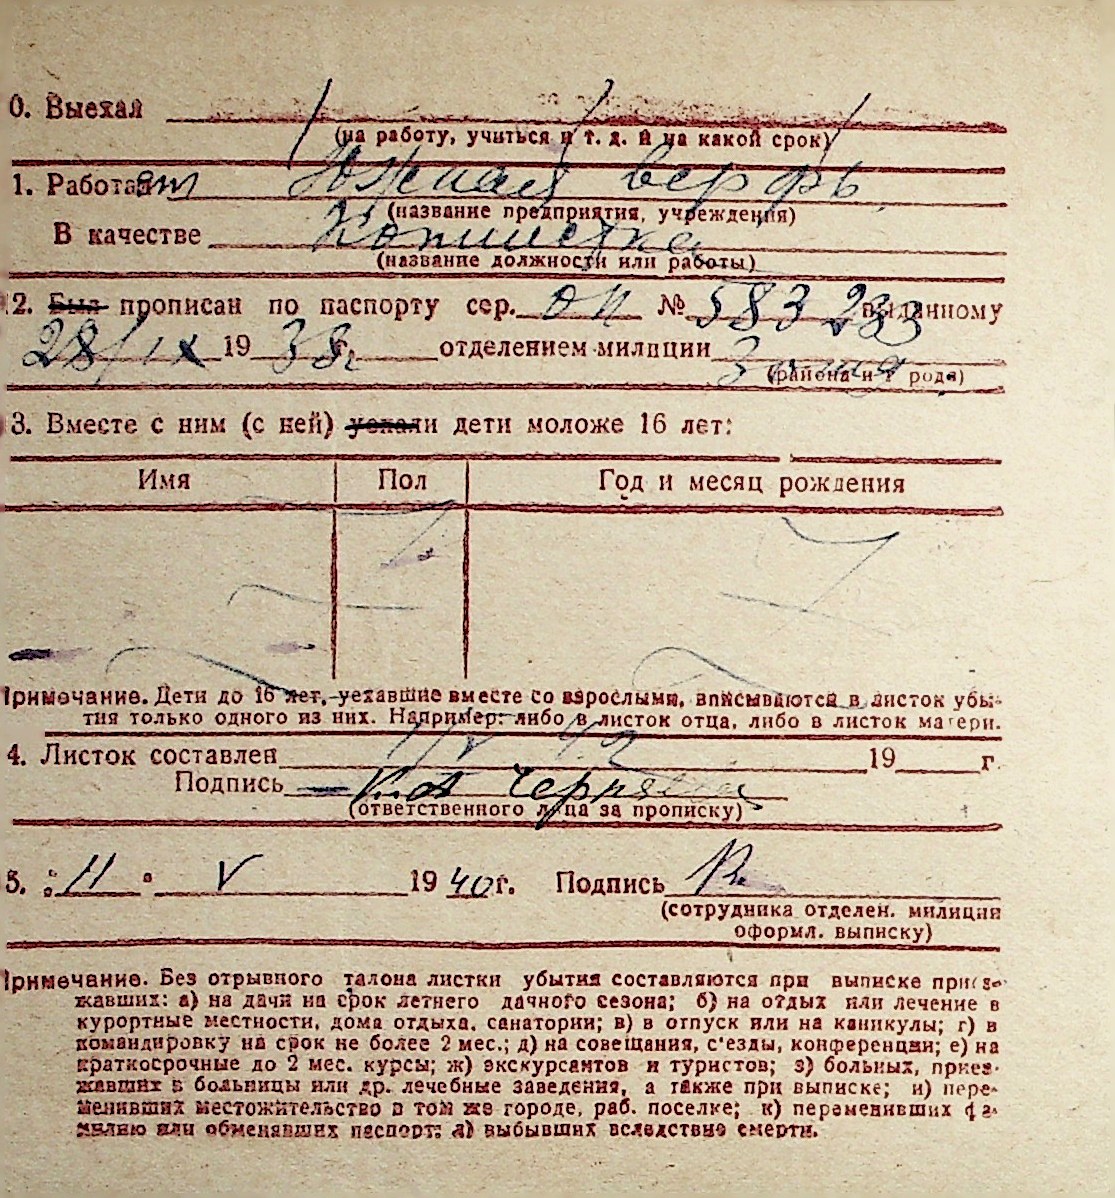 0. Выехал
(на работу, учиться и т. д. и на какой срок)
1. Работает Южная верфь
(название предприятия, учреждения)
В качестве Копиистка
(название должности или работы)
2. Был прописан по паспорту сер. ОП № 583 283 выданному
28/IX 19 38 г. отделением милиции 3
(района и города)
3. Вместе с ним (с ней) уехали дети моложе 16 лет:
Имя Пол Год и месяц рождения
Примечание. Дети до 16 лет, уехавшие вместе со взрослыми, вписываются в листок убы-
тия только одного из них. Например: либо в листок отца, либо в листок матери.
4. Листок составлен 19 г.
Подпись
(ответственного лица за прописку)
5. "11" V 1940 г. Подпись
(сотрудника отделен. милиции
оформл. выписку)
Примечание. Без отрывного талона листки убытия составляются при выписке приез-
жавших: а) на дачи на срок летнего дачного сезона; б) на отдых или лечение в
курортные местности, дома отдыха, санатории; в) в отпуск или на каникулы; г) в
командировку на срок не более 2 мес.; д) на совещания, с'езды, конференции; е) на
краткосрочные до 2 мес. курсы; ж) экскурсантов и туристов; з) больных, приез-
жавших в больницы или др. лечебные заведения, а также при выписке; и) пере-
менивших местожительство в том же городе, раб. поселке; к) переменивших фа-
милию или обменявших паспорт; л) выбывших вследствие смерти.